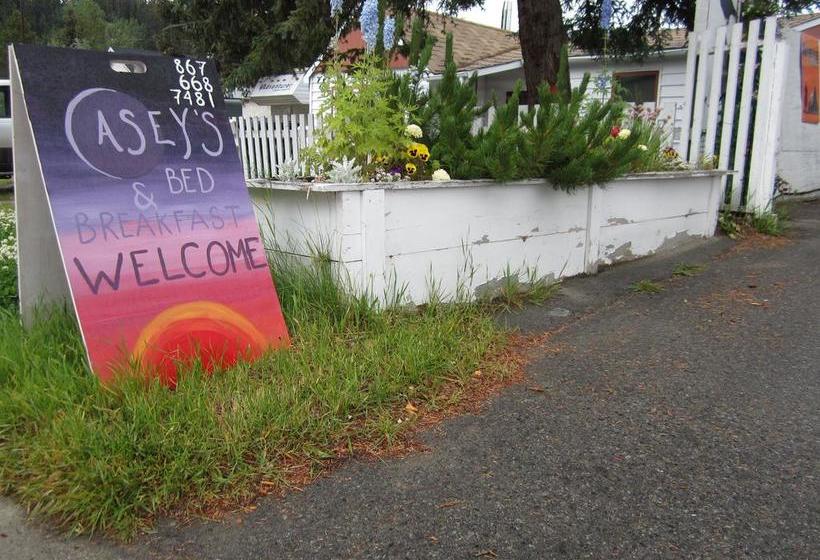 867
668
7481
CASEY'S
& BED
BREAKFAST
WELCOME